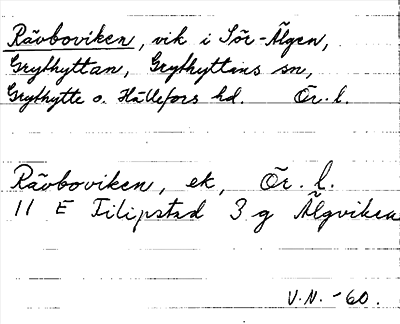 Rävboviken, vik i Sör-Älgen,
Grythyttan, Grythyttans sn,
Grythytte o. Hällefors hd. Ör. l.
Rävboviken, ek, Ör. l.
11 E Filipstad 3 g Älgviken
V.N. -60.